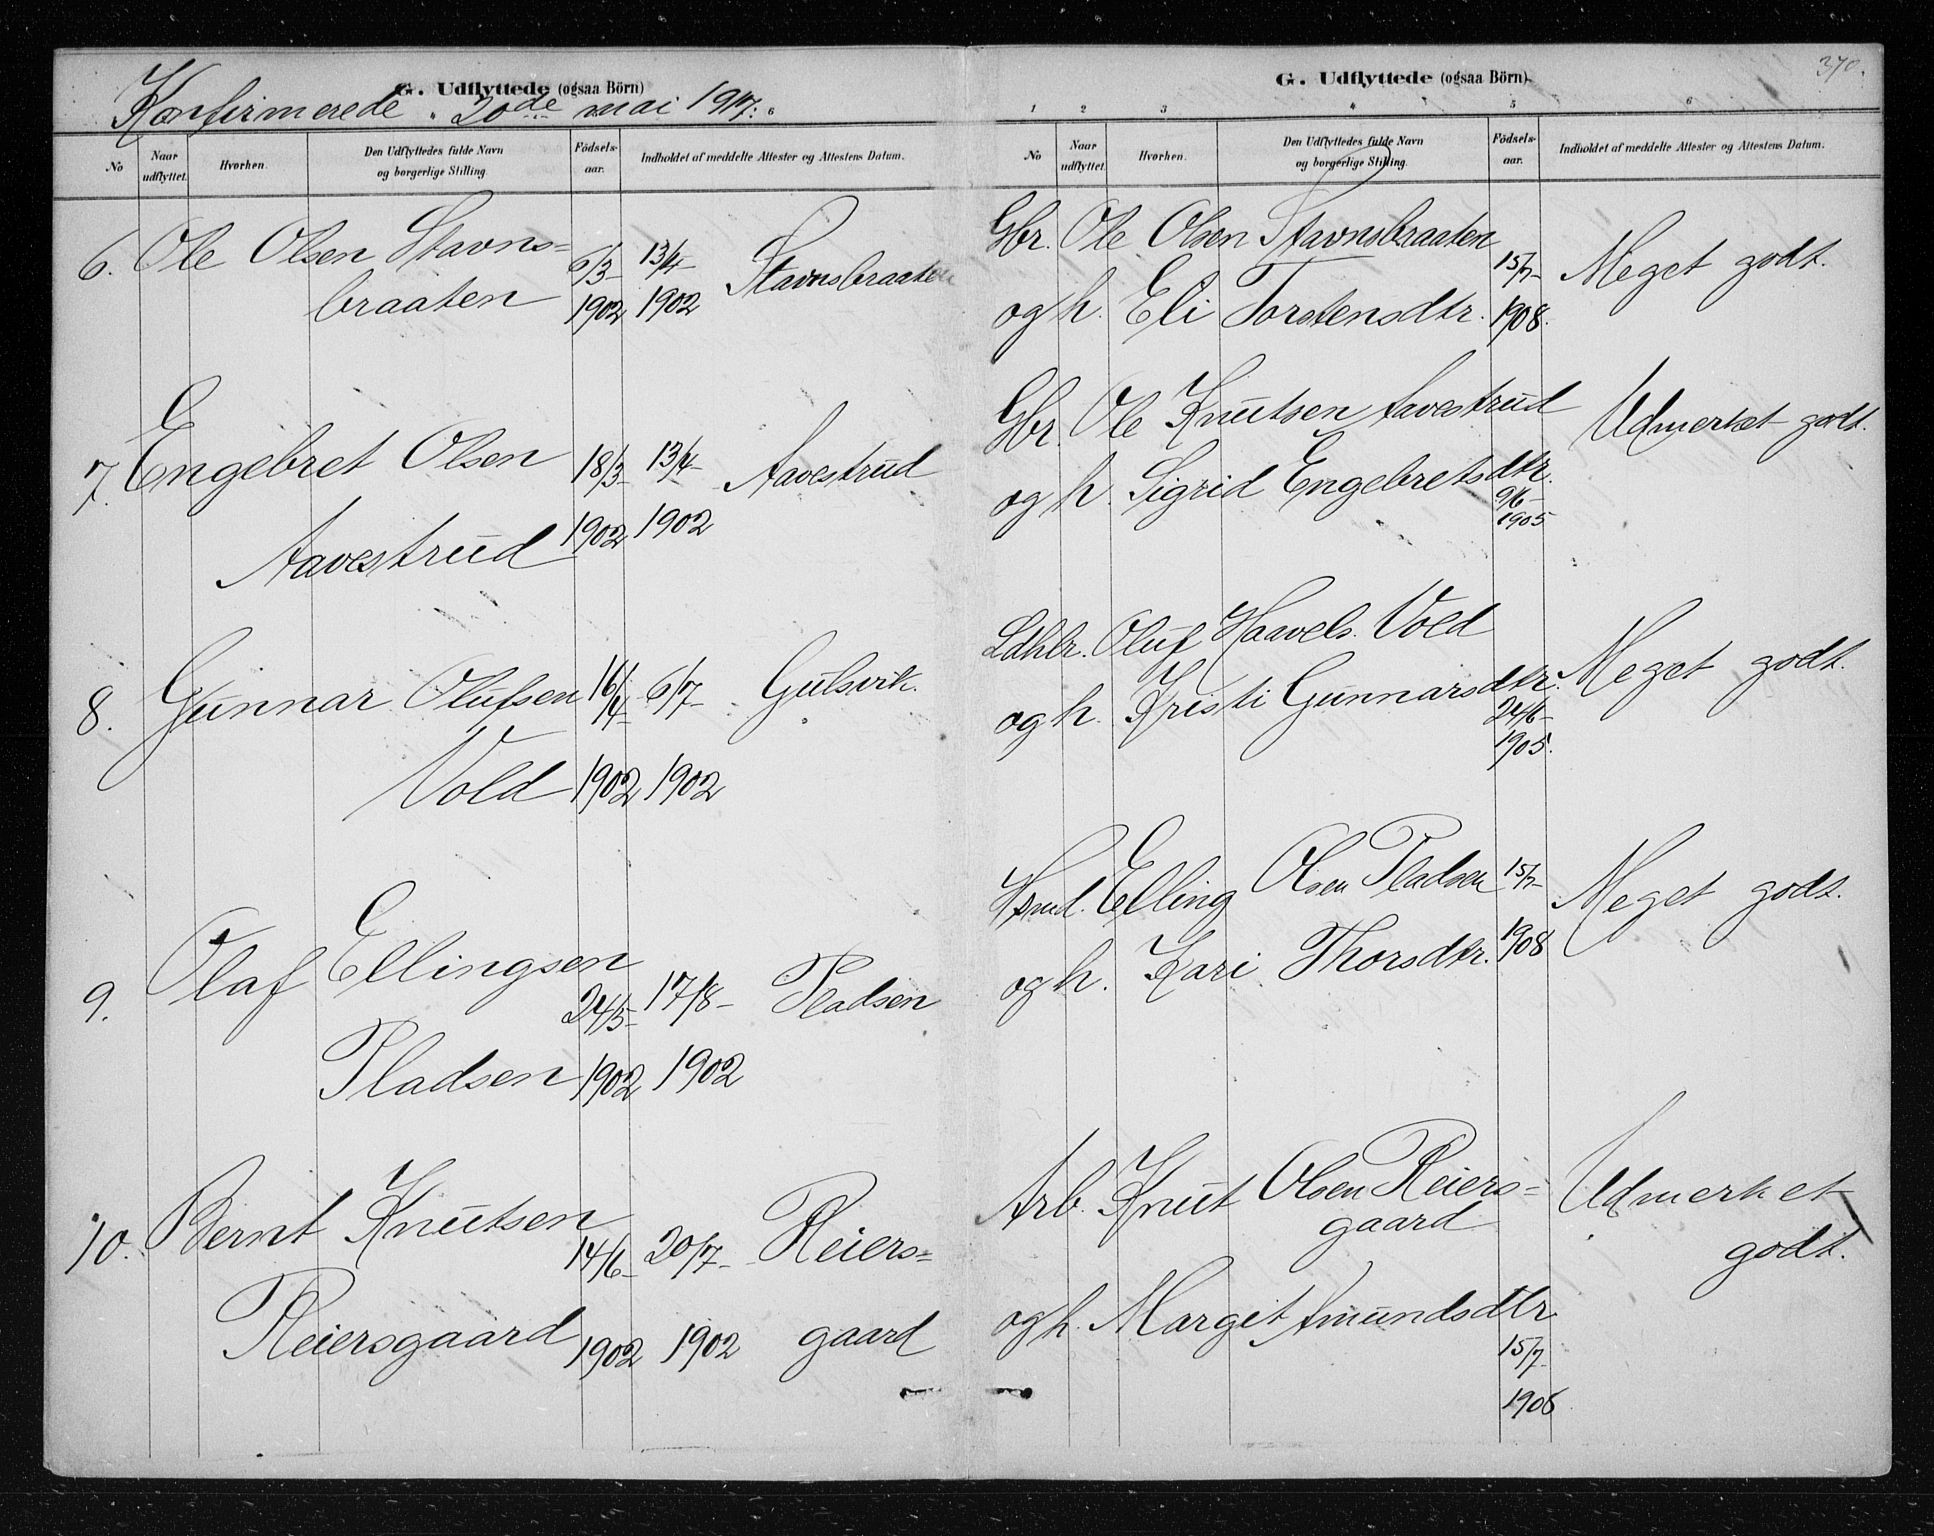 G. Udflyttede (ogsaa Börn)
Konfirmerede 20de mai 1917.
6
No
Naar udflyttet.
Hvorhen.
Den Udflyttedes fulde Navn og borgerlige Stilling.
Födsels-aar.
Indholdet af meddelte Attester og Attestens Datum.
6. Ole Olsen Stavns= 6/3- 13/4- Stavnsbraaten
braaten 1902 1902
7. Engebret Olsen 18/3- 13/4- Aavestrud
Aavestrud 1902 1902
8. Gunnar Olufsen 16/4- 6/7- Gulsvik.
Vold 1902 1902
9. Olaf Ellingsen 24/5- 17/8- Pladsen
Pladsen 1902 1902
10. Bernt Knutsen 14/6- 20/7- Reiers=
Reiersgaard 1902 1902 gaard
370.
G. Udflyttede (ogsaa Börn).
1 2 3 4 5 6
No
Naar udflyttet.
Hvorhen.
Den Udflyttedes fulde Navn og borgerlige Stilling.
Födsels-aar.
Indholdet af meddelte Attester og Attestens Datum.
Gbr. Ole Olsen Stavnsbraaten 15/7- Meget godt.
og h. Eli Torstensdtr. 1908.
Gbr. Ole Knutsen Aavestrud Udmerket godt.
og h. Sigrid Engebretsdtr.
9/6-
1905
Ldhlr. Oluf Haavels. Vold Meget godt.
og h. Kristi Gunnarsdtr.
24/6-
1905.
Hsmd. Elling Olsen Pladsen 15/7- Meget godt.
og h. Kari Thorsdtr. 1908
Arb. Knut Olsen Reiers= Udmerket
gaard godt.
og h. Margit Amundsdtr
15/7-
1906